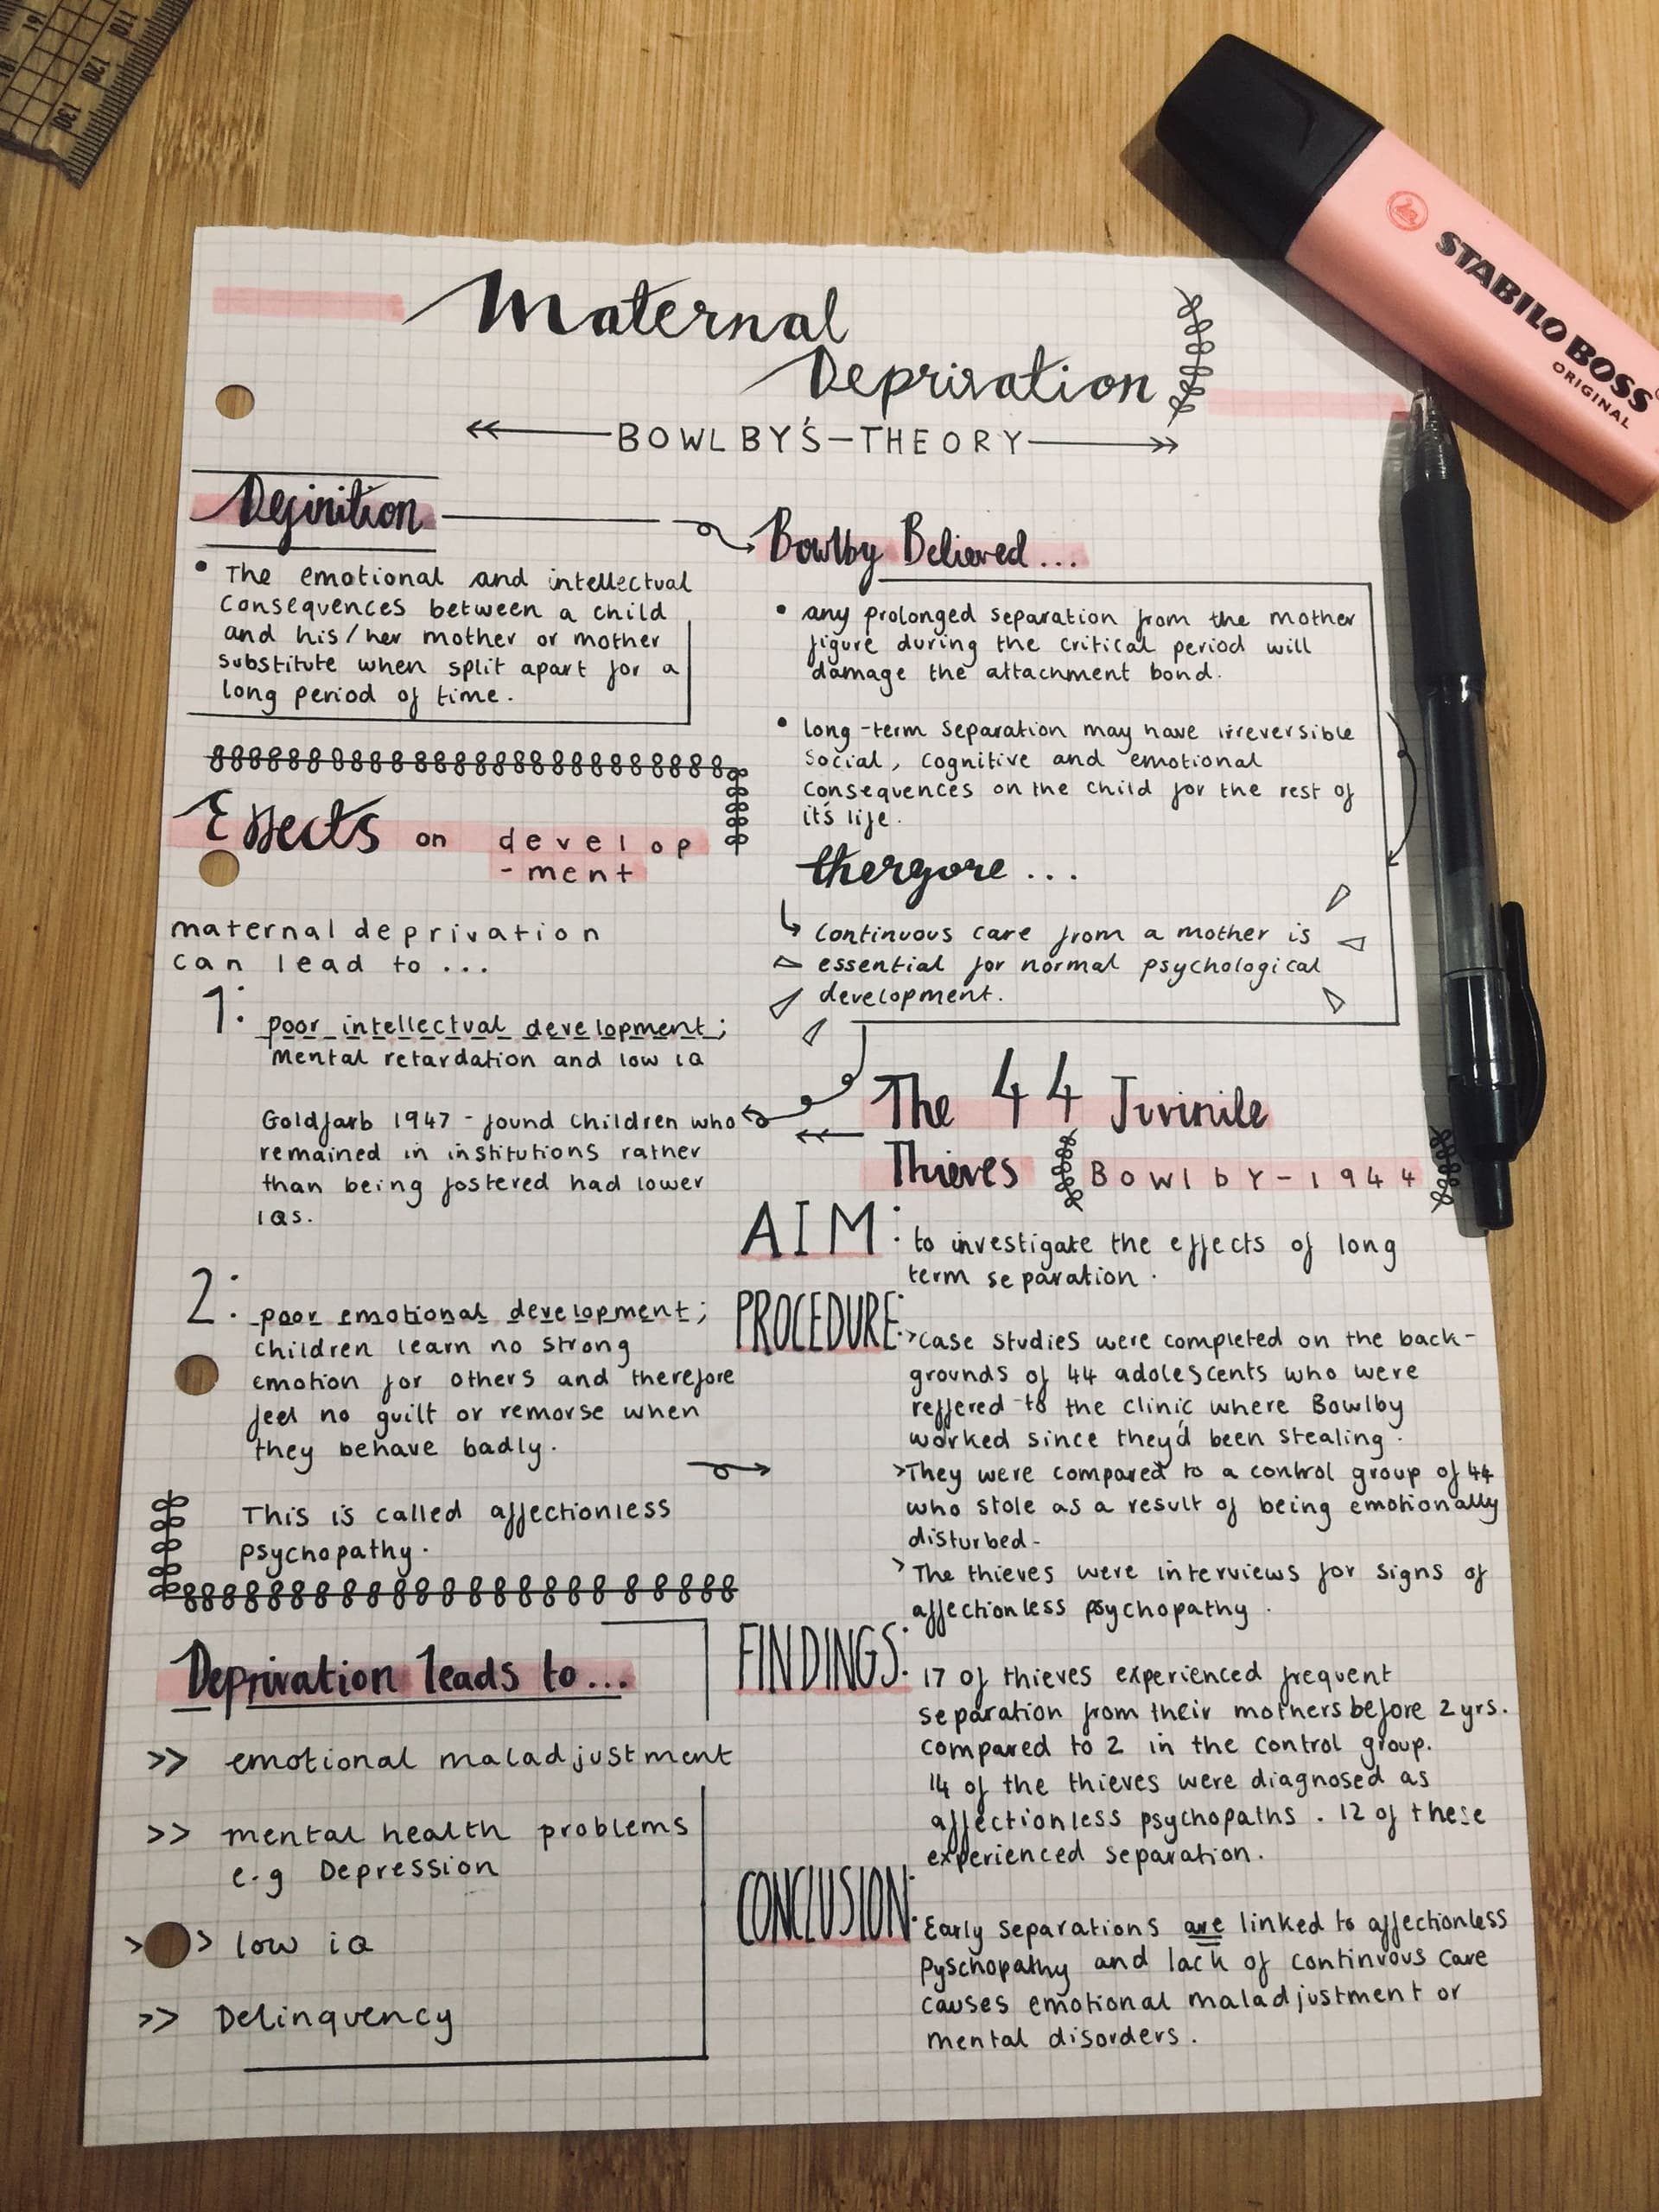 Maternal
Deprivation
BOWLBY'S-THEORY
Definition
• The emotional and intellectual
consequences between a child
and his/her mother or mother
substitute when split apart for a
long period of time.
Bowlby Believed...
• any prolonged separation from the mother
figure during the critical period will
damage the attachment bond.
• long-term separation may have irreversible
social, cognitive and emotional
consequences on the child for the rest of
it's life.
therefore...
continuous care from a mother is
essential for normal psychological
development.
Effects on develop
-ment
maternal deprivation
can lead to...
1: poor intellectual development;
Mental retardation and low IQ
Goldfarb 1947 - found children who
remained in institutions rather
than being fostered had lower
IQs.
2: poor emotional development;
children learn no strong
emotion for others and therefore
feel no guilt or remorse when
they behave badly.
This is called affectionless
psychopathy.
Deprivation leads to...
>> emotional maladjustment
>> mental health problems
e.g Depression
>> low iQ
>> Delinquency
The 44 Juvinile
Thieves BowlbY-1944
AIM: to investigate the effects of long
term separation.
PROCEDURE: >case studies were completed on the back-
grounds of 44 adolescents who were
reffered to the clinic where Bowlby
worked since they'd been stealing.
>They were compared to a control group of 44
who stole as a result of being emotionally
disturbed-
>The thieves were interviews for signs of
affectionless psychopathy.
FINDINGS: 17 of thieves experienced frequent
separation from their mothers before 2yrs.
compared to 2 in the control group.
14 of the thieves were diagnosed as
affectionless psychopaths. 12 of these
experienced separation.
CONCLUSION: Early separations are linked to affectionless
Pyschopathy and lack of continuous care
causes emotional maladjustment or
mental disorders.
STABILO BOSS
ORIGINAL
110
120
130